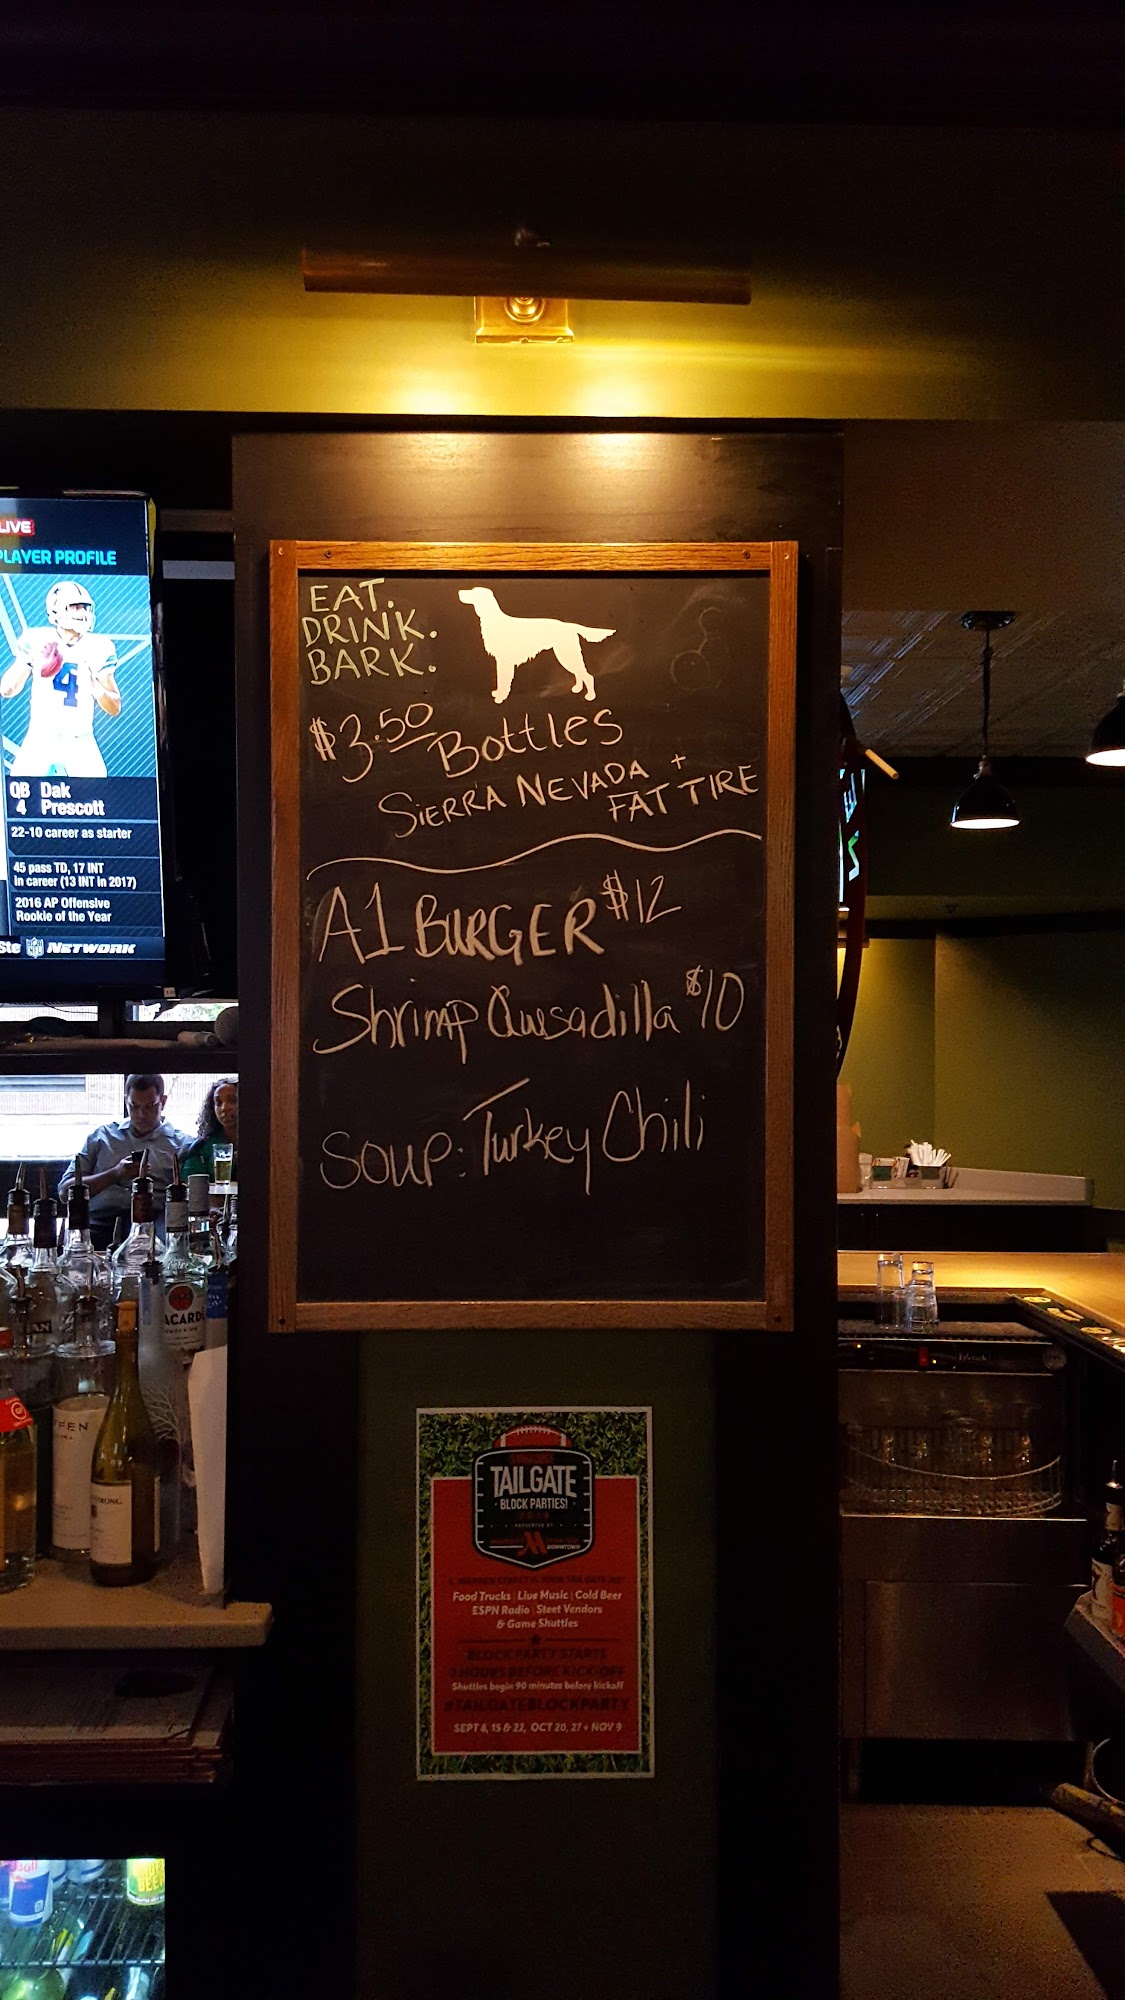 LIVE
PLAYER PROFILE
4
QB Dak
4 Prescott
22-10 career as starter
45 pass TD, 17 INT
in career (13 INT in 2017)
2016 AP Offensive
Rookie of the Year
NFL NETWORK
EAT.
DRINK.
BARK.
$3.50 Bottles
SIERRA NEVADA +
FAT TIRE
A1 BURGER $12
Shrimp Quesadilla $10
SOUP: Turkey Chili
TAILGATE
BLOCK PARTIES!
PRESENTED BY
DOWNTOWN
Food Trucks | Live Music | Cold Beer
ESPN Radio | Steet Vendors
& Game Shuttles
BLOCK PARTY STARTS
3 HOURS BEFORE KICK-OFF
Shuttles begin 90 minutes before kickoff
#TAILGATEBLOCKPARTY
SEPT 8, 15 & 22, OCT 20, 27 + NOV 9